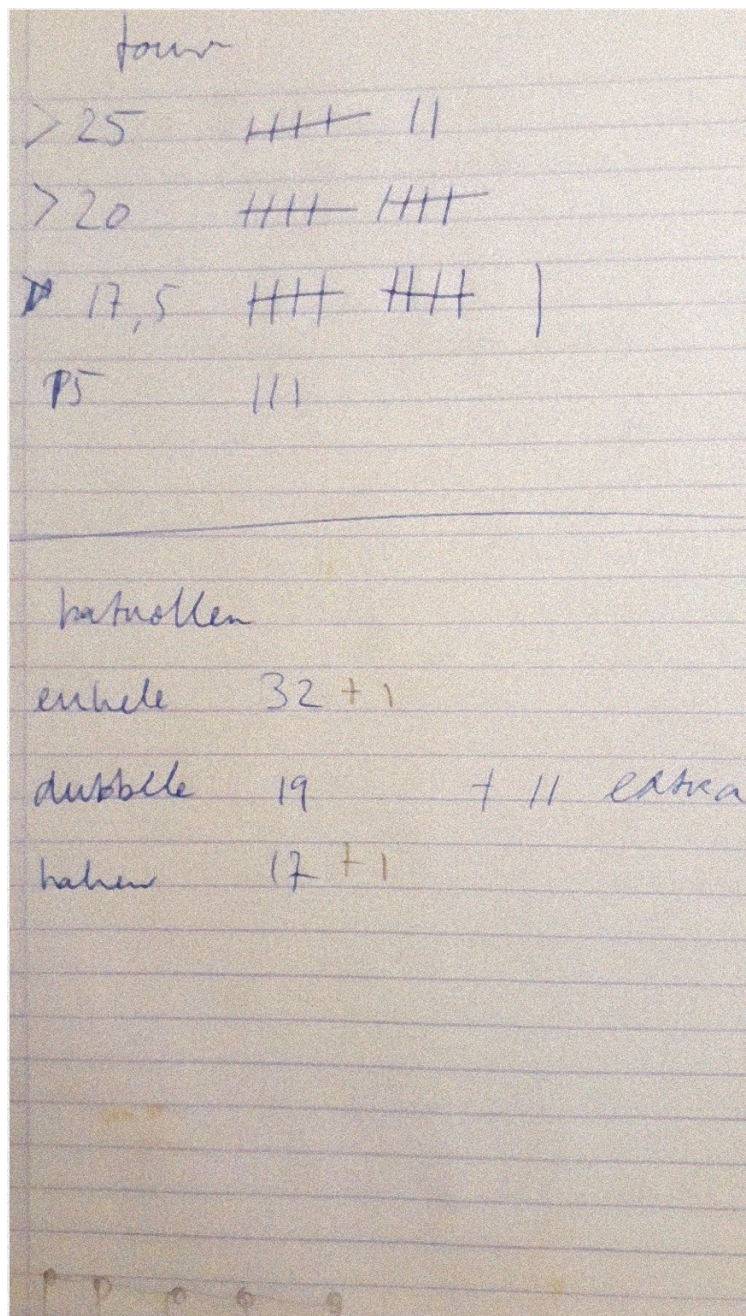 touw
> 25 |||| ||
> 20 |||| ||||
17,5 |||| |||| |
15 |||
katrollen
enkele 32 + 1
dubbele 19 + 11 extra
haken 17 + 1